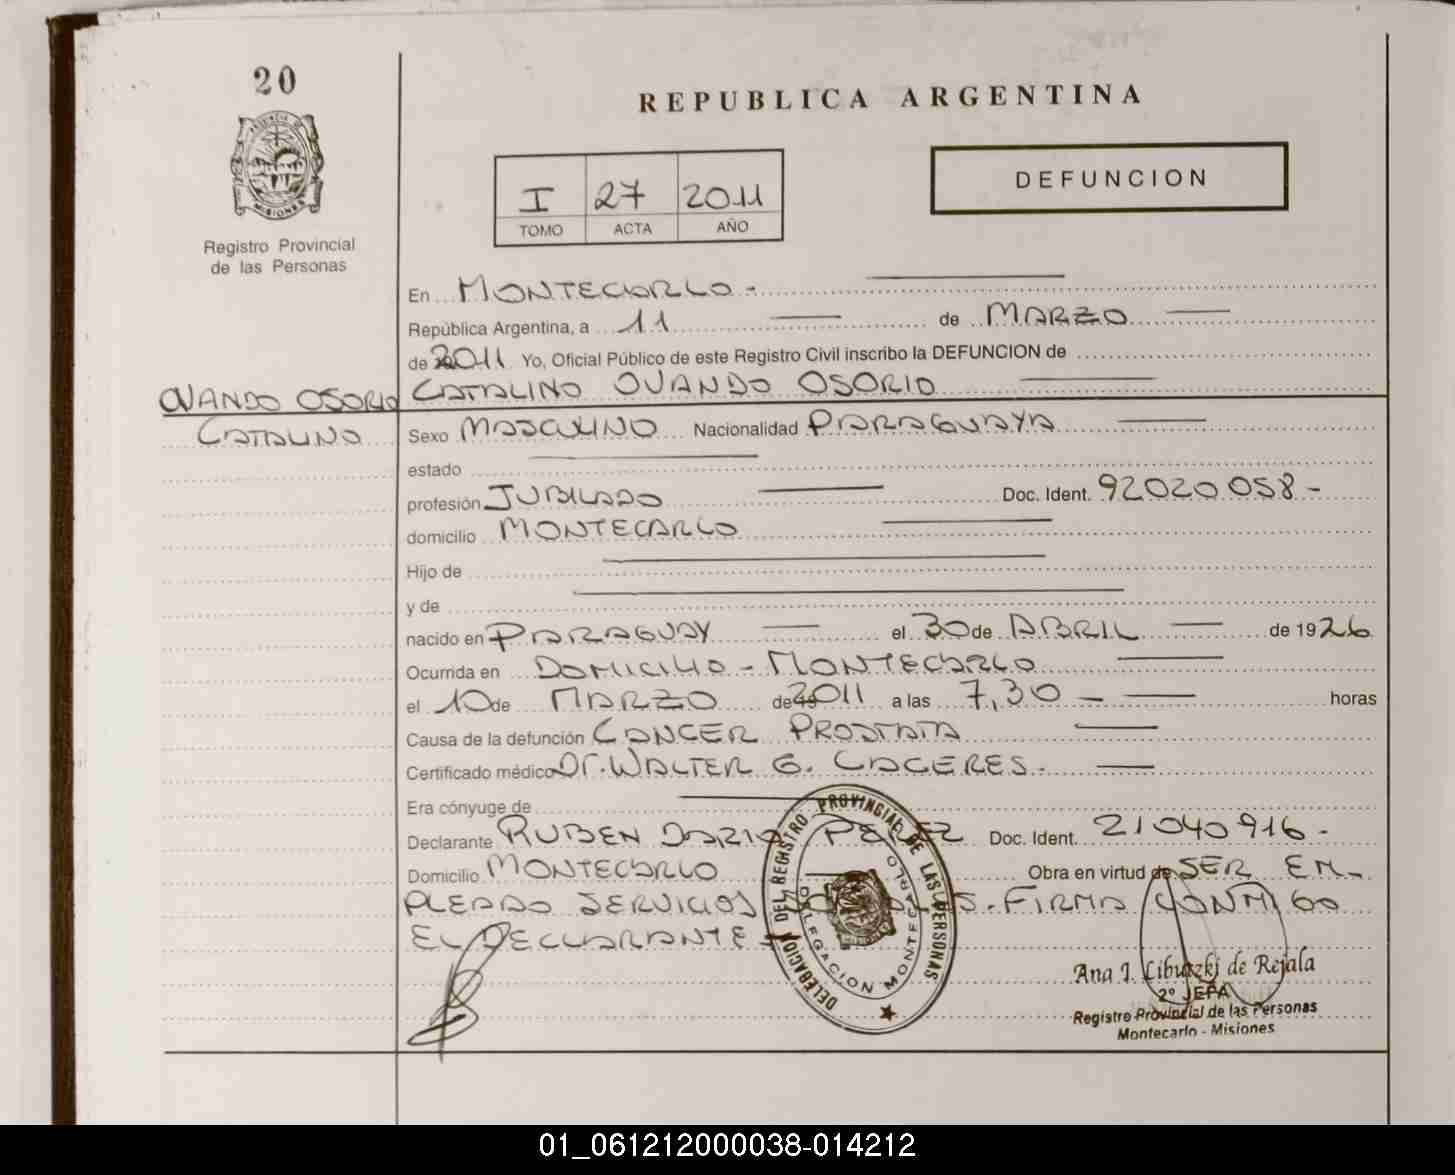 20
PROVINCIA DE
MISIONES
Registro Provincial
de las Personas
REPUBLICA ARGENTINA
I 27 2011
TOMO ACTA AÑO
DEFUNCION
En MONTECARLO -
República Argentina, a 11 de MARZO
de 2011 Yo, Oficial Público de este Registro Civil inscribo la DEFUNCION de
OVANDO OSORIO CATALINO OVANDO OSORIO
CATALINO Sexo MASCULINO Nacionalidad PARAGUAYA
estado
profesión JUBILADO Doc. Ident. 92020058 -
domicilio MONTECARLO
Hijo de
y de
nacido en PARAGUAY el 30 de ABRIL de 1926
Ocurrida en DOMICILIO - MONTECARLO
el 10 de MARZO de 19 2011 a las 7,30 - horas
Causa de la defunción CANCER PROSTATA
Certificado médico Dr. WALTER G. CACERES -
Era cónyuge de
Declarante RUBEN DARIO PEREZ Doc. Ident. 21040916 -
Domicilio MONTECARLO Obra en virtud de SER EM-
PLEADO SERVICIOS - FIRMA CONMIGO
EL DECLARANTE -
DELEGACION DEL REGISTRO PROVINCIAL DE LAS PERSONAS
DELEGACION MONTECARLO
Ana I. Libuszki de Rejala
2º JEFA
Registro Provincial de las Personas
Montecarlo - Misiones
01_061212000038-014212